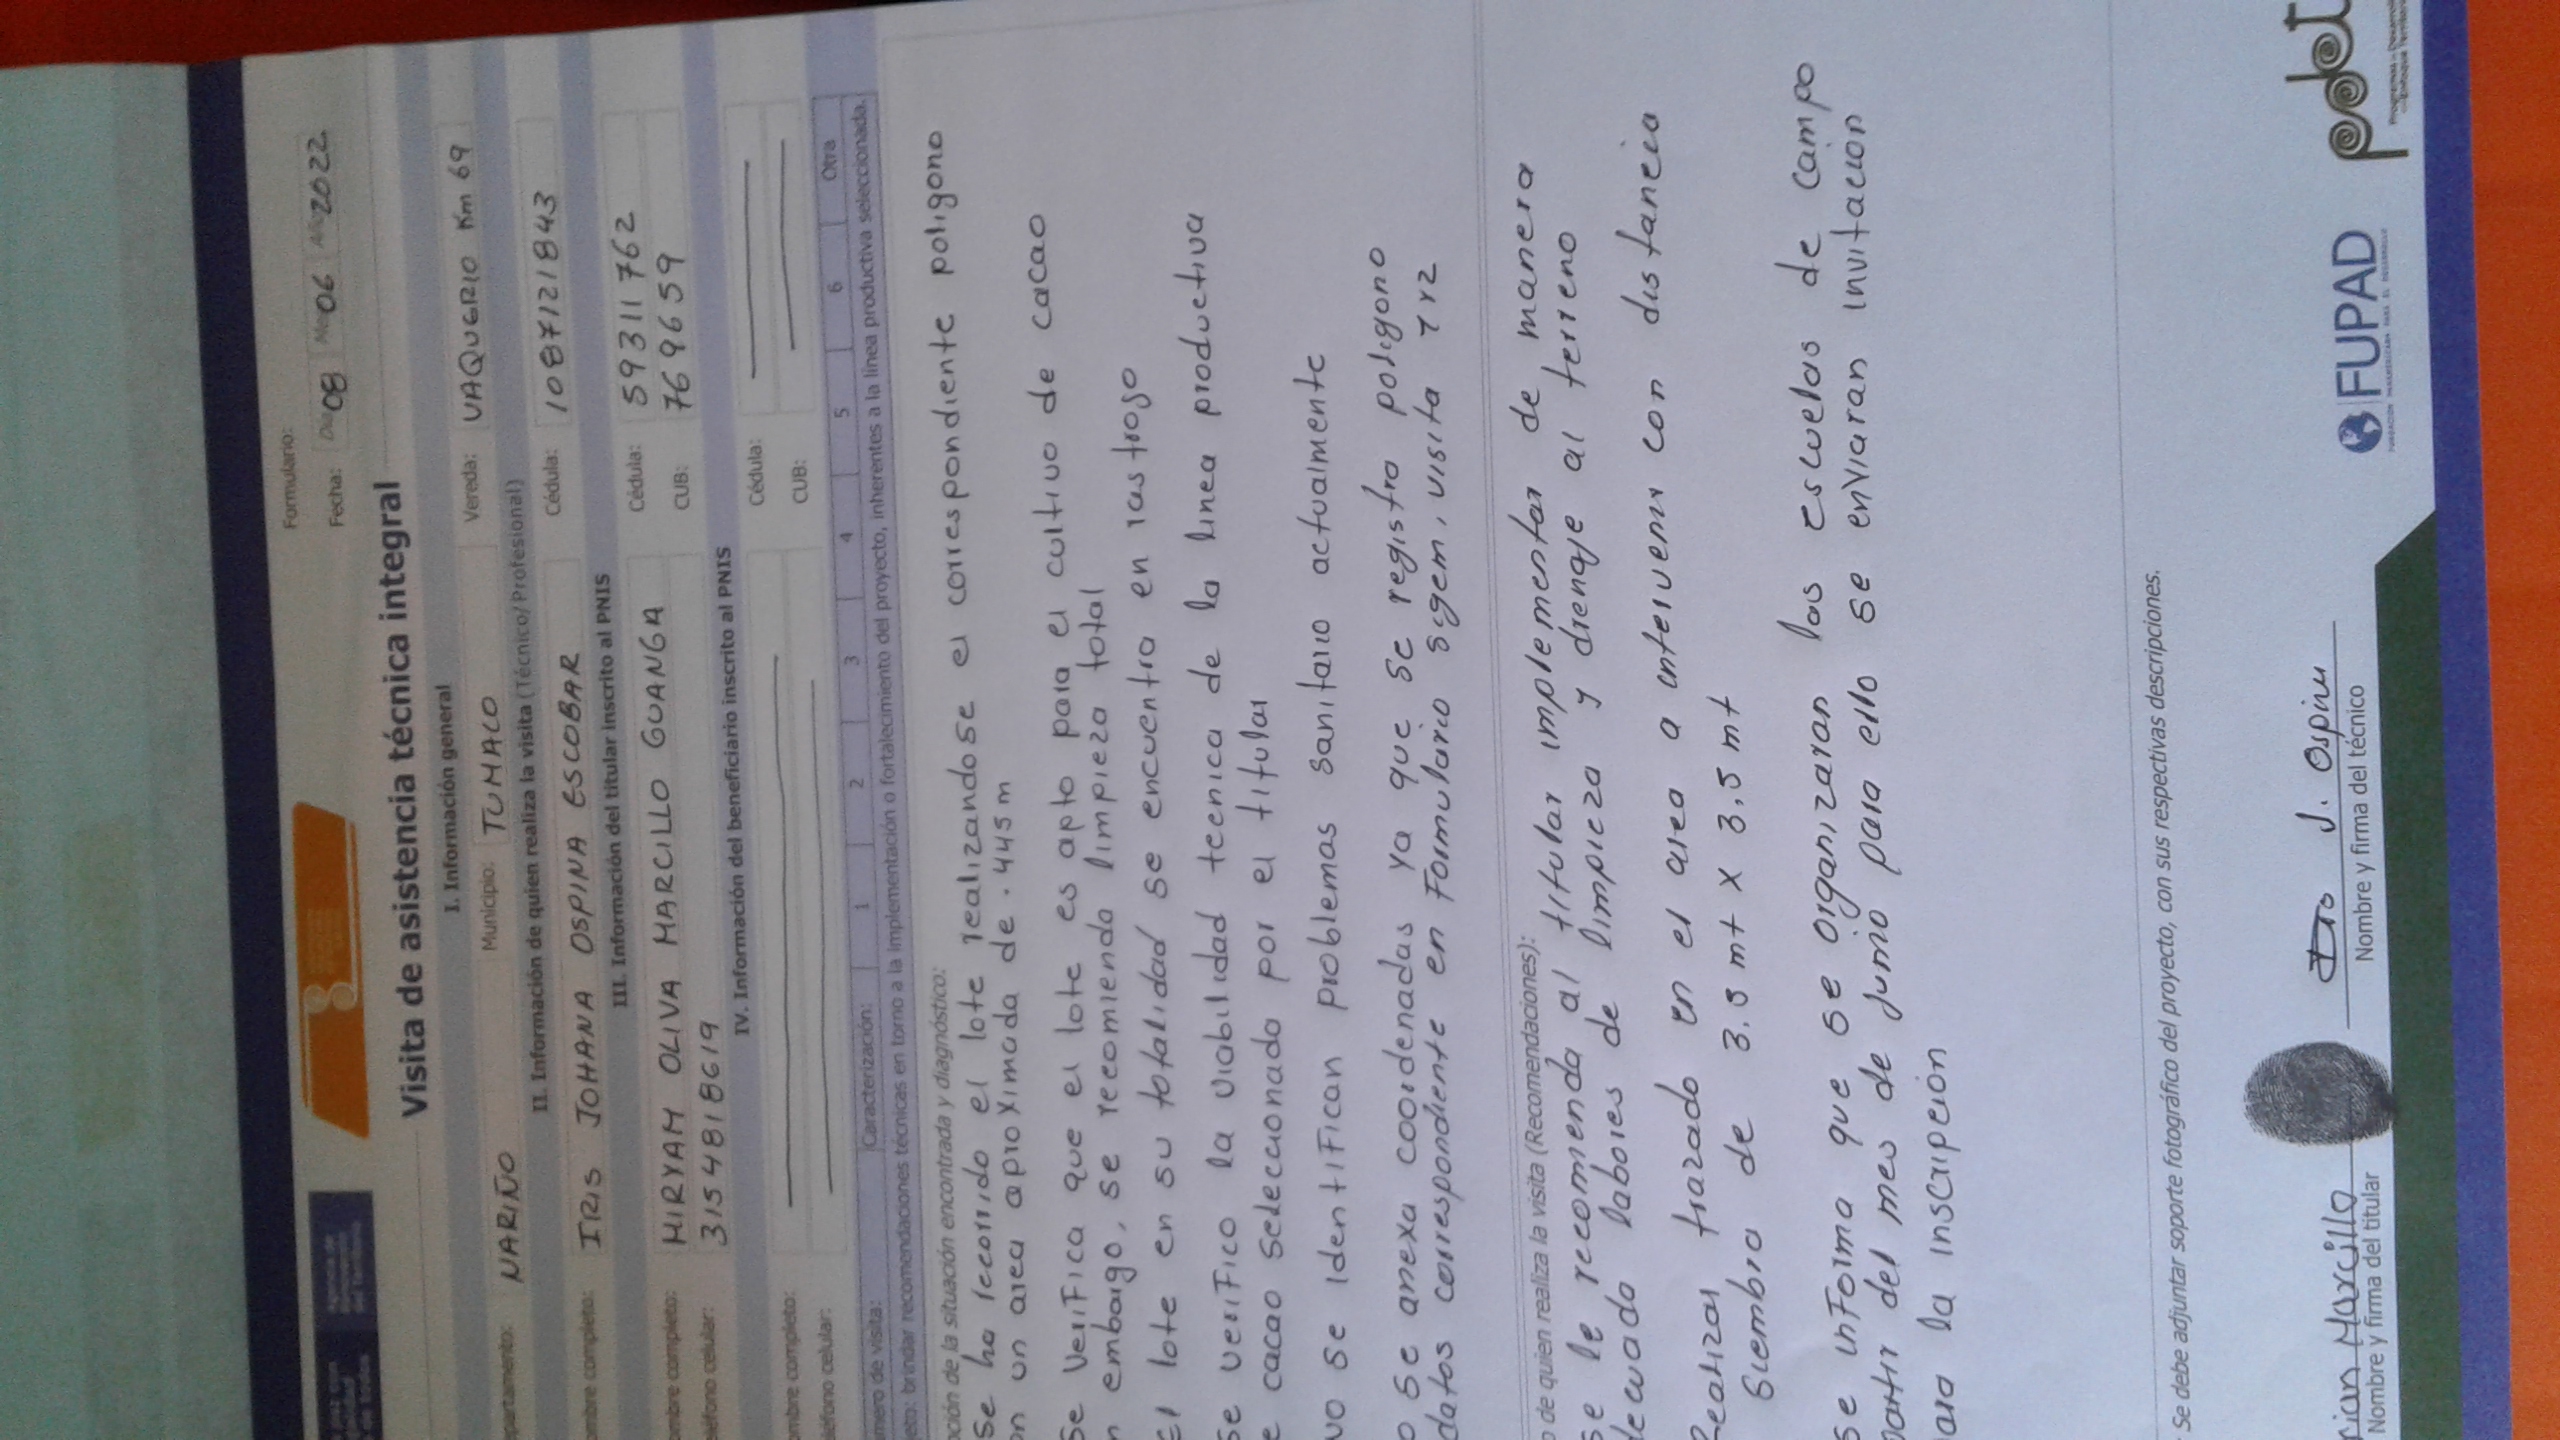 Formulario:
Fecha: Día 08 Mes 06 Año 2022
Visita de asistencia técnica integral
I. Información general
partamento: NARIÑO Municipio: TUMACO Vereda: VAQUERIO Km 69
II. Información de quien realiza la visita (Técnico/Profesional)
ombre completo: IRIS JOHANA OSPINA ESCOBAR Cédula: 1087121843
III. Información del titular inscrito al PNIS
ombre completo: MIRYAM OLIVA MARCILLO GUANGA Cédula: 59311762
eléfono celular: 3154818619 CUB: 769659
IV. Información del beneficiario inscrito al PNIS
ombre completo: Cédula:
eléfono celular: CUB:
úmero de visita: Caracterización: 1 2 3 4 5 6 Otra
jeto: brindar recomendaciones técnicas en torno a la implementación o fortalecimiento del proyecto, inherentes a la línea productiva seleccionada.
pción de la situación encontrada y diagnóstico:
Se ha recorrido el lote realizandose el correspondiente poligono
on un area aproximada de . 445 m
Se Verifica que el lote es apto para el cultivo de cacao
n embargo, se recomienda limpieza total
El lote en su totalidad se encuentra en rastrojo
Se verifico la viabilidad tecnica de la linea productiva
e cacao seleccionada por el titular
No se identifican problemas sanitario actualmente
o se anexa coordenadas ya que se registra poligono
datos correspondiente en Formulario sygem, visita 1 y 2
o de quien realiza la visita (Recomendaciones):
se le recomienda al titular implementar de manera
decuada labores de limpieza y drenaje al terreno
Realizar trazado en el area a intervenir con distancia
Siembra de 3.5 mt x 3.5 mt
se informa que se organizaran las escuelas de campo
partir del mes de Junio para ello se enviaran invitacion
ara la inscripcion
Se debe adjuntar soporte fotográfico del proyecto, con sus respectivas descripciones.
Marcillo J. Ospina
Nombre y firma del titular Nombre y firma del técnico
FUPAD
FUNDACIÓN PANAMERICANA PARA EL DESARROLLO
pdet